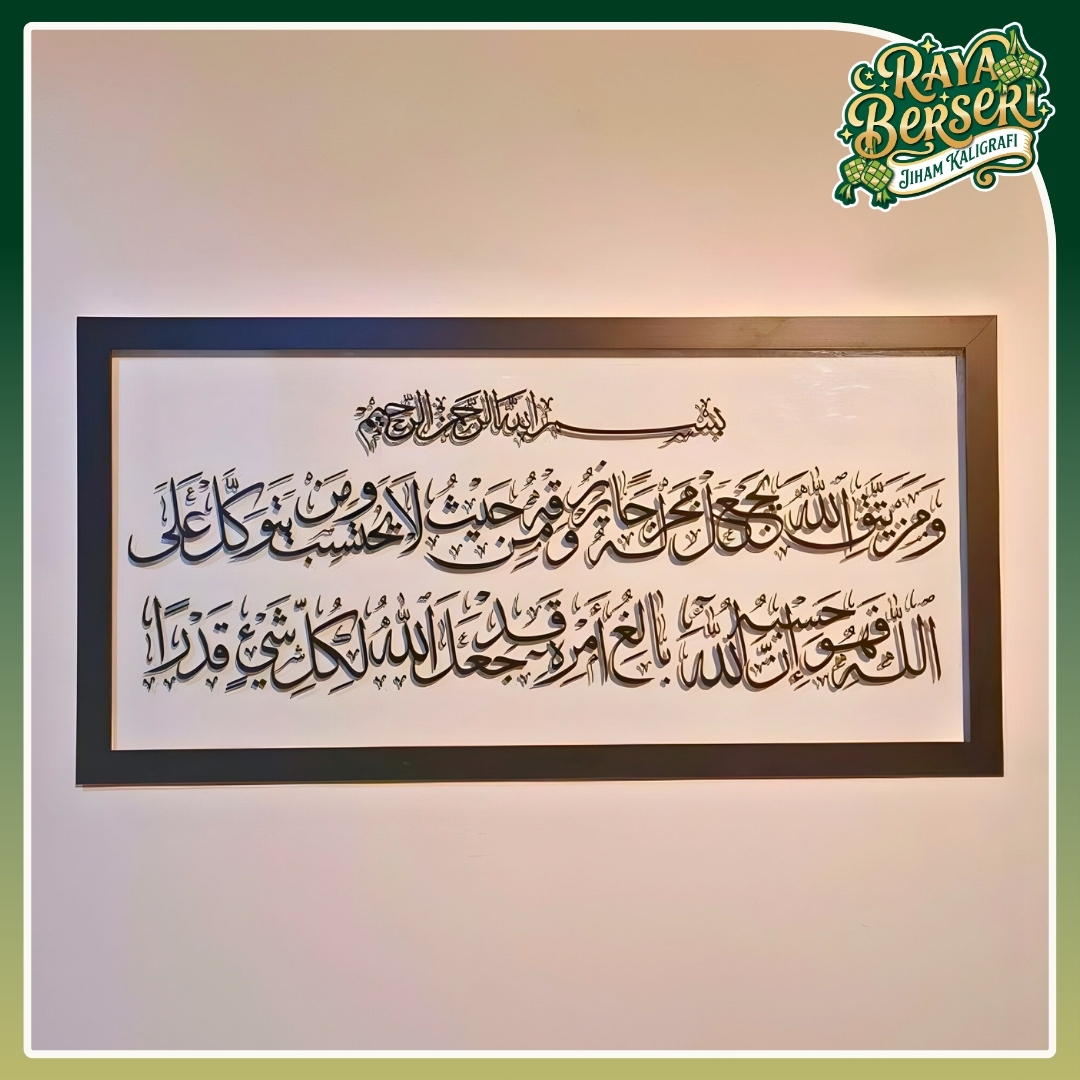 RAYA
BERSERI
JIHAM KALIGRAFI
بِسْمِ اللهِ الرَّحْمٰنِ الرَّحِيْمِ
وَمَنْ يَتَّقِ اللهَ يَجْعَلْ لَهُ مَخْرَجًا وَيَرْزُقْهُ مِنْ حَيْثُ لَا يَحْتَسِبُ وَمَنْ يَتَوَكَّلْ عَلَى
اللهِ فَهُوَ حَسْبُهُ إِنَّ اللهَ بَالِغُ أَمْرِهِ قَدْ جَعَلَ اللهُ لِكُلِّ شَيْءٍ قَدْرًا